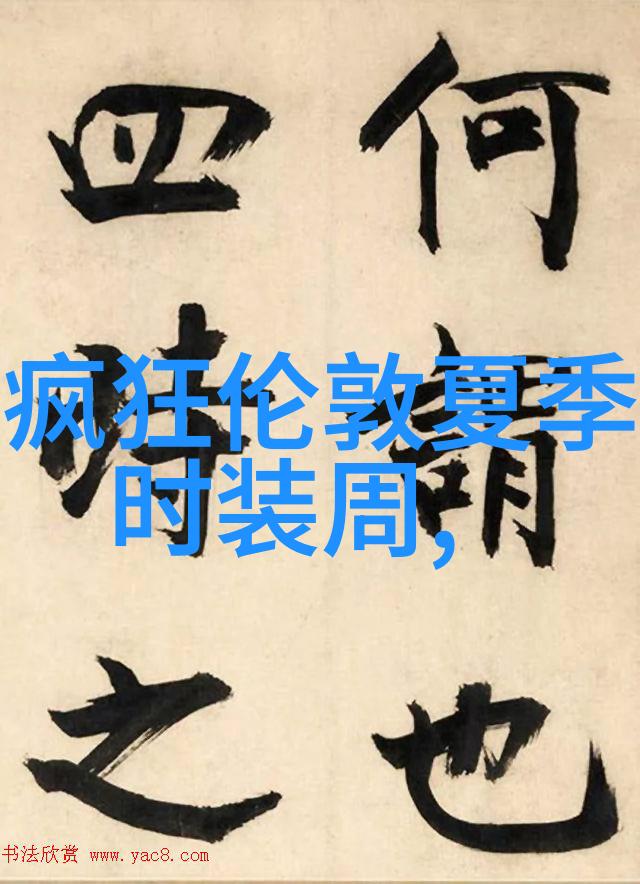 何谓也
四時之
疯狂伦敦夏季
时装周,
书法欣赏 www.yac8.com